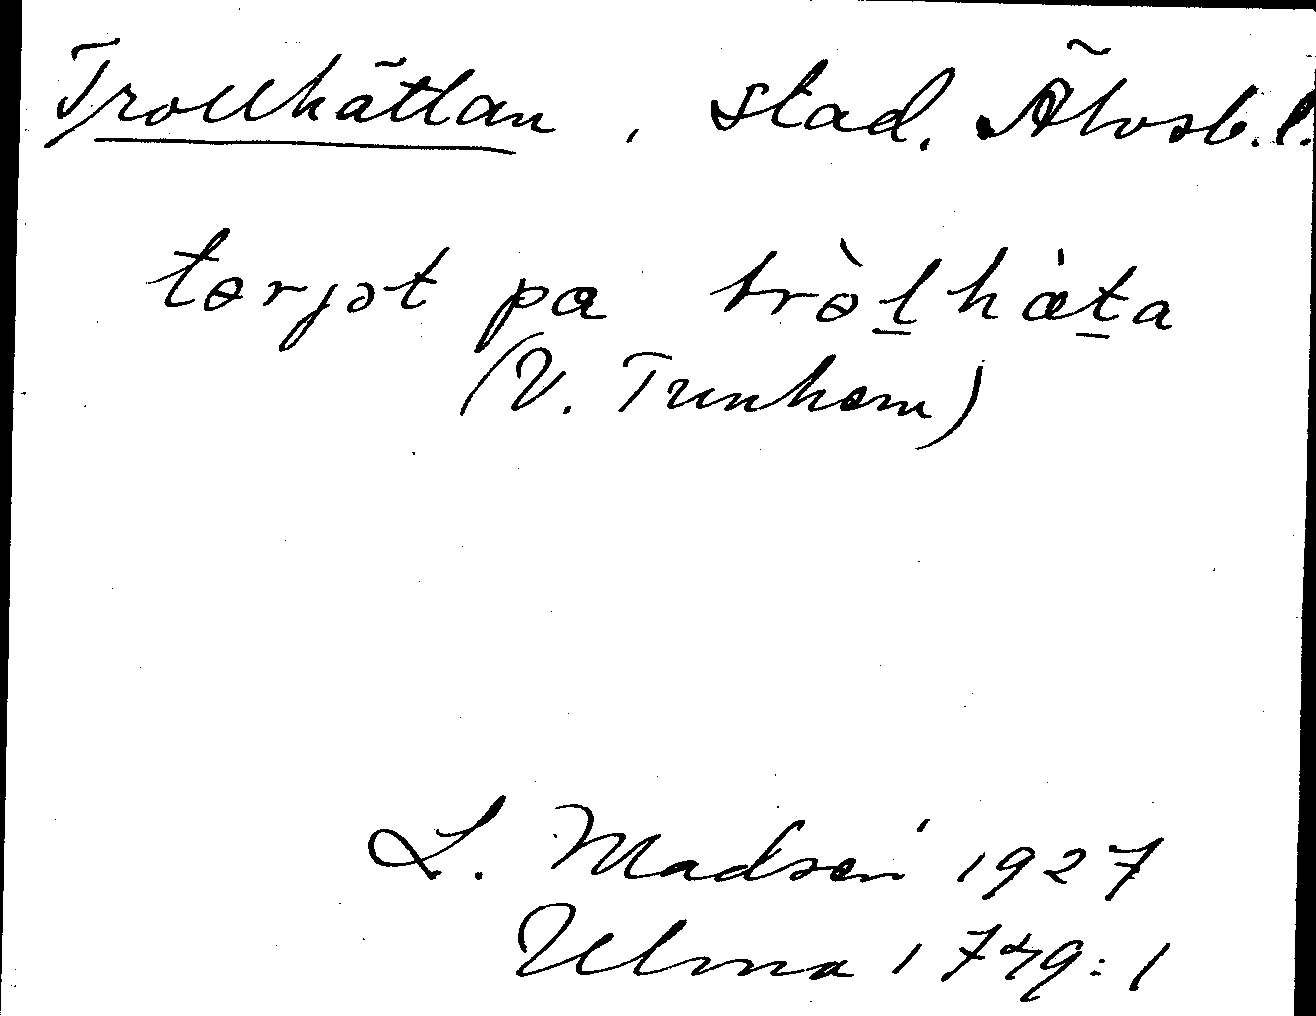 Trollhättan, stad. Älvsb. l.
tɵrjət pɑ trɵ̀l̠hæ̀t̠a
(V. Tunhem)
L. Madsén 1927
Ulma 1749:1